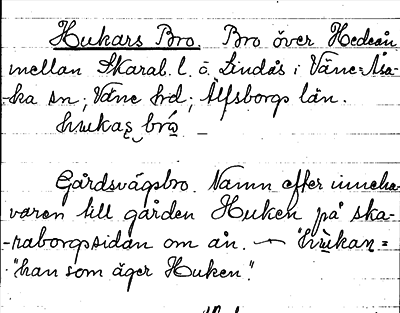 Hukars Bro. Bro över Hedeån
mellan Skarab. l. o. Lindås i Väne-Åsa-
-ka sn; Väne hrd; Älfsborgs län.
hukaʂ bró –
Gårdsvägsbro. Namn efter inneha-
varen till gården Huken på ska-
-raborgssidan om ån. –
"han som äger Huken".